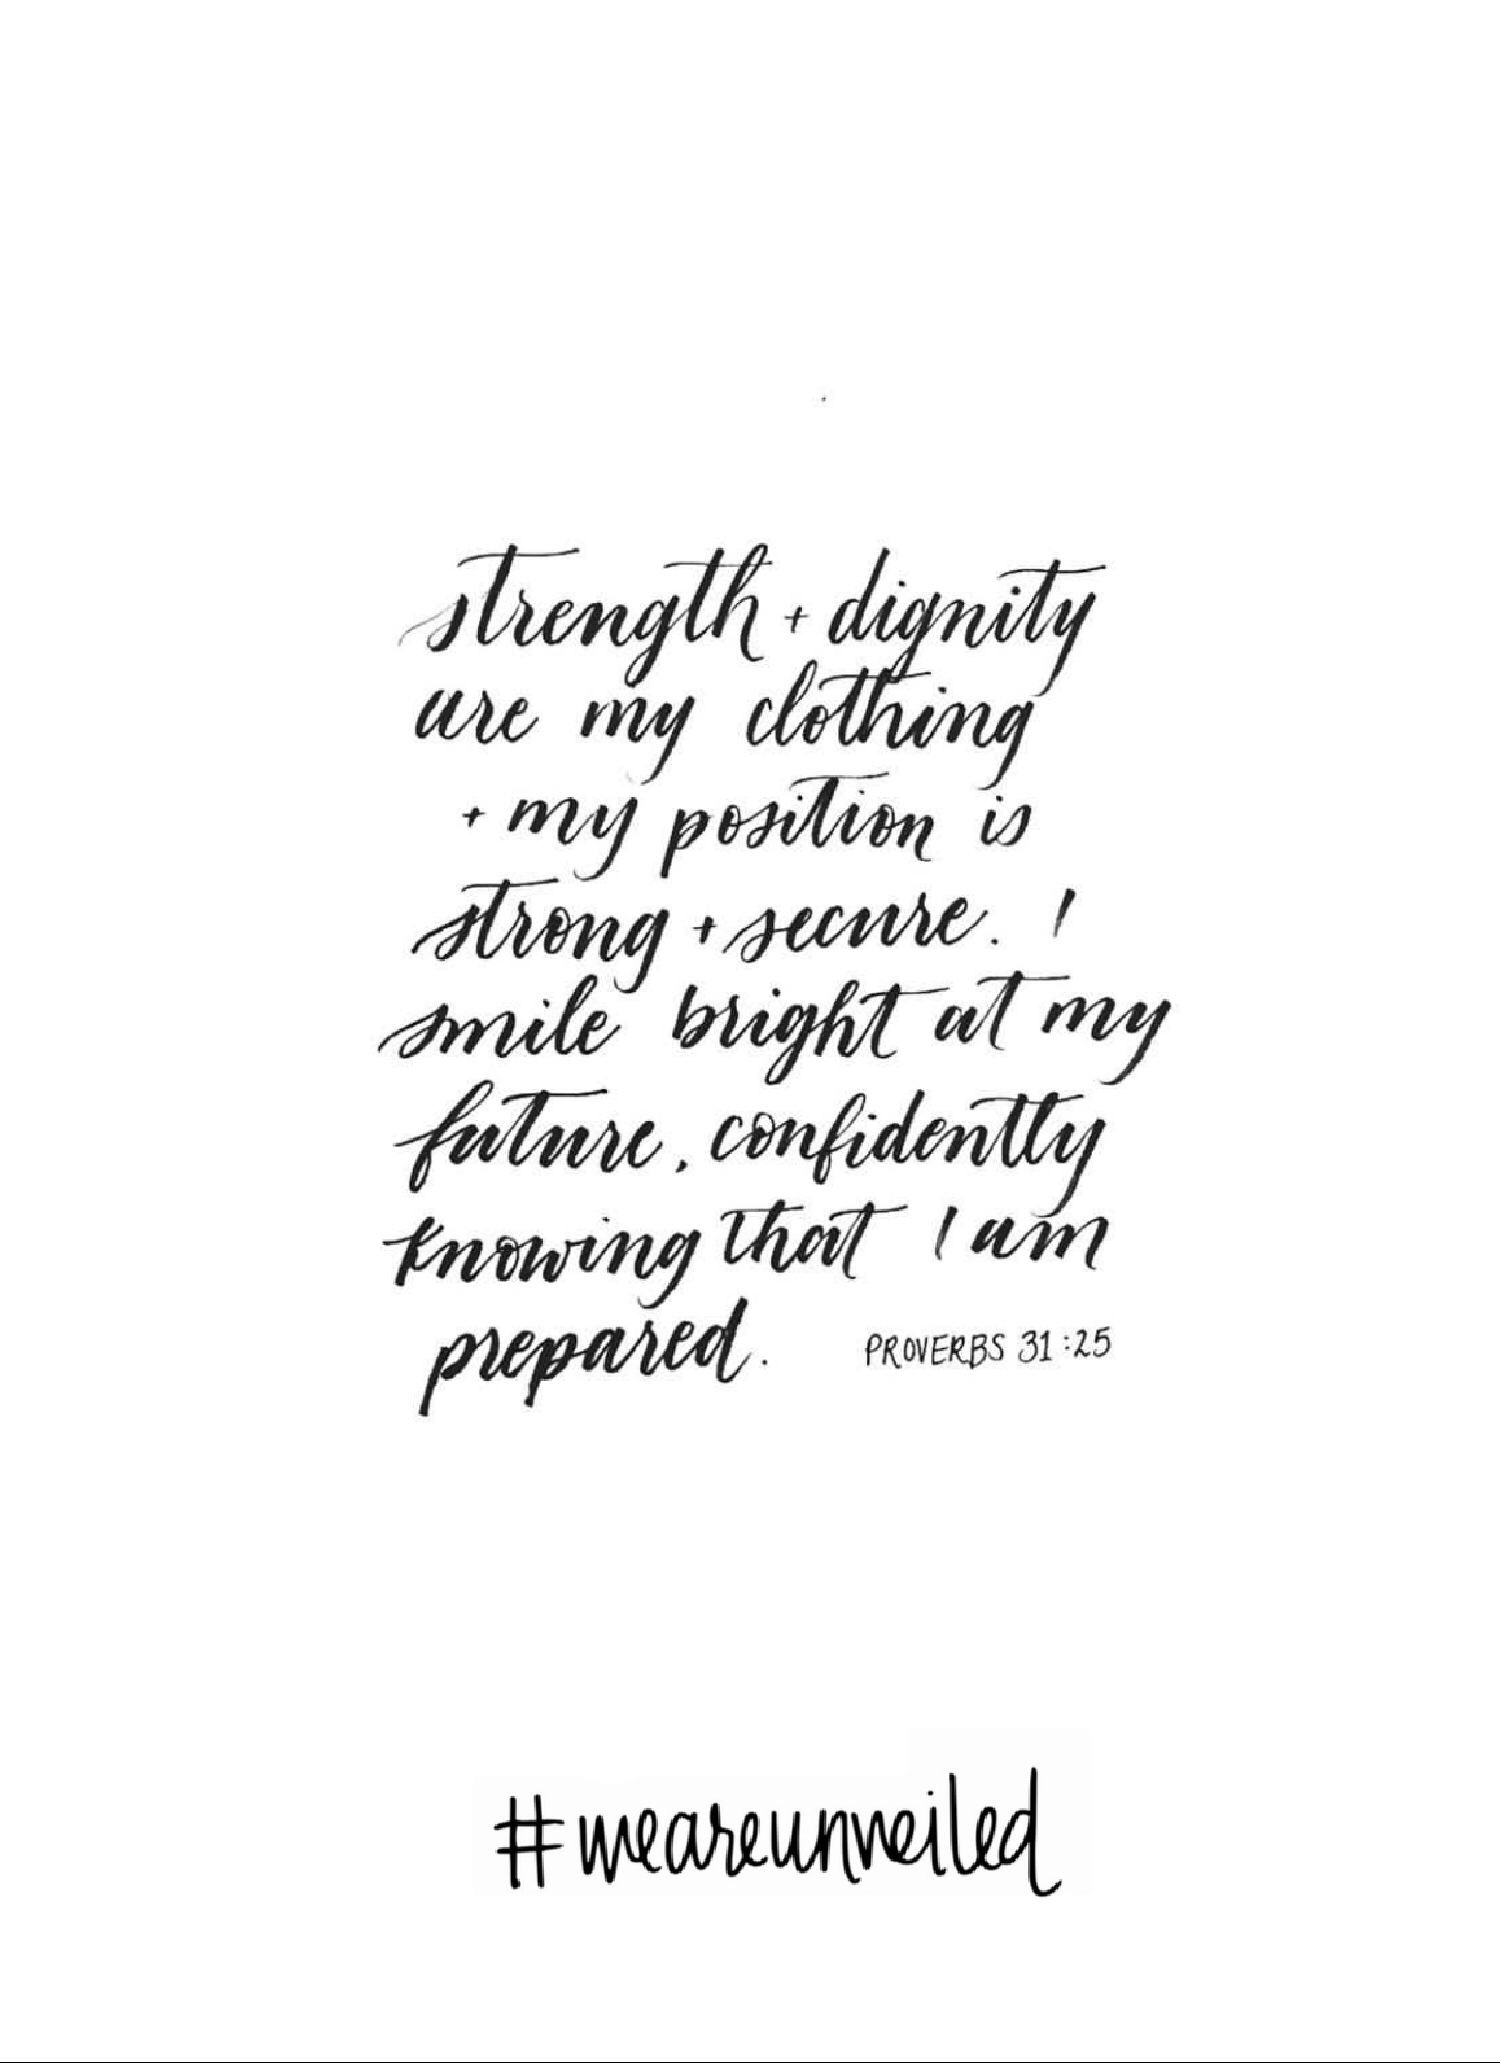 strength + dignity
are my clothing
+ my position is
strong + secure. I
smile bright at my
future, confidently
knowing that I am
prepared. PROVERBS 31:25
#weareunveiled